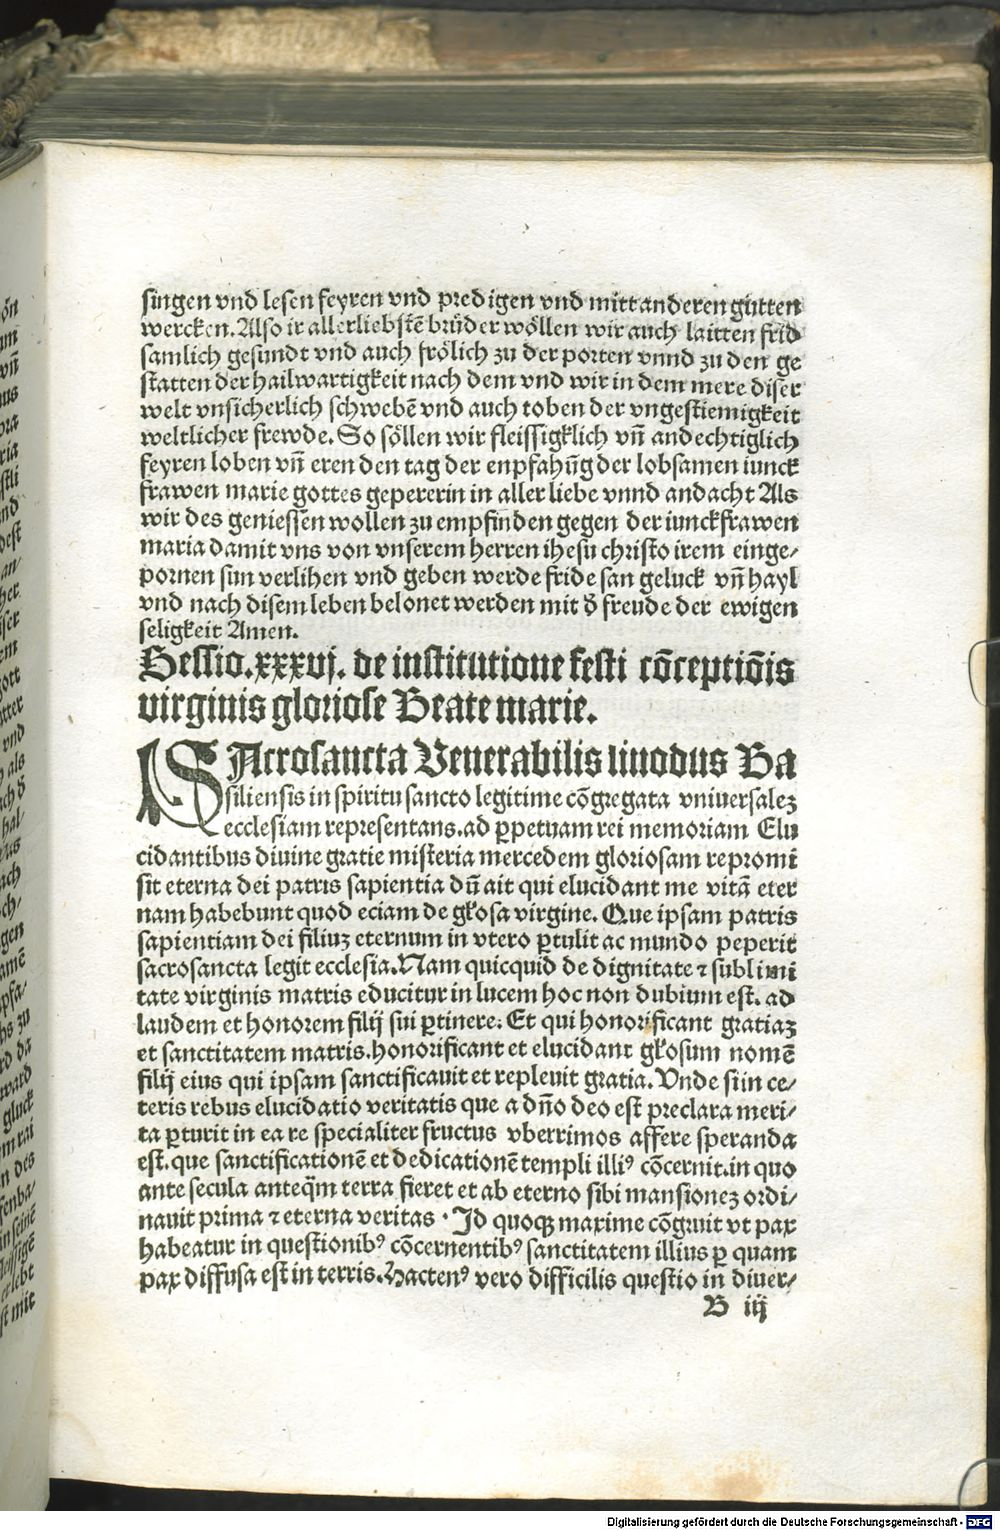 singen vnd lesen feyren vnd predigen vnd mitt anderen gůtten
wercken. Also ir allerliebstē brůder wöllen wir auch laitten frid
samlich gesundt vnd auch frölich zu der porten vnnd zu den ge
statten der hailwartigkeit nach dem vnd wir in dem mere diser
welt vnsicherlich schwebē vnd auch toben der vngestiemigkeit
weltlicher frewde. So söllen wir fleissigklich vn̄ andechtiglich
feyren loben vn̄ eren den tag der enpfahūg der lobsamen iunck
frawen marie gottes gepererin in aller liebe vnnd andacht Als
wir des geniessen wollen zu empfinden gegen der iunckfrawen
maria damit vns von vnserem herren ihesu christo irem einge⸗
pornen sun verlihen vnd geben werde fride san geluck vn̄ hayl
vnd nach disem leben belonet werden mit d̄ freude der ewigen
seligkeit Amen.
Sessio.xxxvj. de institutione festi cōceptiōis
virginis gloriose Beate marie.
SAcrosancta Venerabilis sinodus Ba
siliensis in spiritu sancto legitime cōgregata vniuersalez
ecclesiam representans.ad ꝑpetuam rei memoriam Elu
cidantibus diuine gratie misteria mercedem gloriosam repromi
sit eterna dei patris sapientia dū ait qui elucidant me vitā eter
nam habebunt quod eciam de gl̄osa virgine. Que ipsam patris
sapientiam dei filiuz eternum in vtero ꝑtulit ac mundo peperit
sacrosancta legit ecclesia.Nam quicquid de dignitate ⁊ sublimi
tate virginis matris educitur in lucem hoc non dubium est. ad
laudem et honorem filij sui ꝑtinere: Et qui honorificant gratiaz
et sanctitatem matris.honorificant et elucidant gl̄osum nomē
filij eius qui ipsam sanctificauit et repleuit gratia. Vnde si in ce⸗
teris rebus elucidatio veritatis que a dn̄o deo est preclara meri⸗
ta ꝑturit in ea re specialiter fructus vberrimos affere speranda
est. que sanctificationē et dedicationē templi illiꝰ cōcernit.in quo
ante secula anteq̄m terra fieret et ab eterno sibi mansionez ordi⸗
nauit prima ⁊ eterna veritas · Id quoqꝫ maxime cōgruit vt pax
habeatur in questionibꝰ cōcernentibꝰ sanctitatem illius ꝑ quam
pax diffusa est in terris.Hactenꝰ vero difficilis questio in diuer⸗
B iij
Digitalisierung gefördert durch die Deutsche Forschungsgemeinschaft - DFG